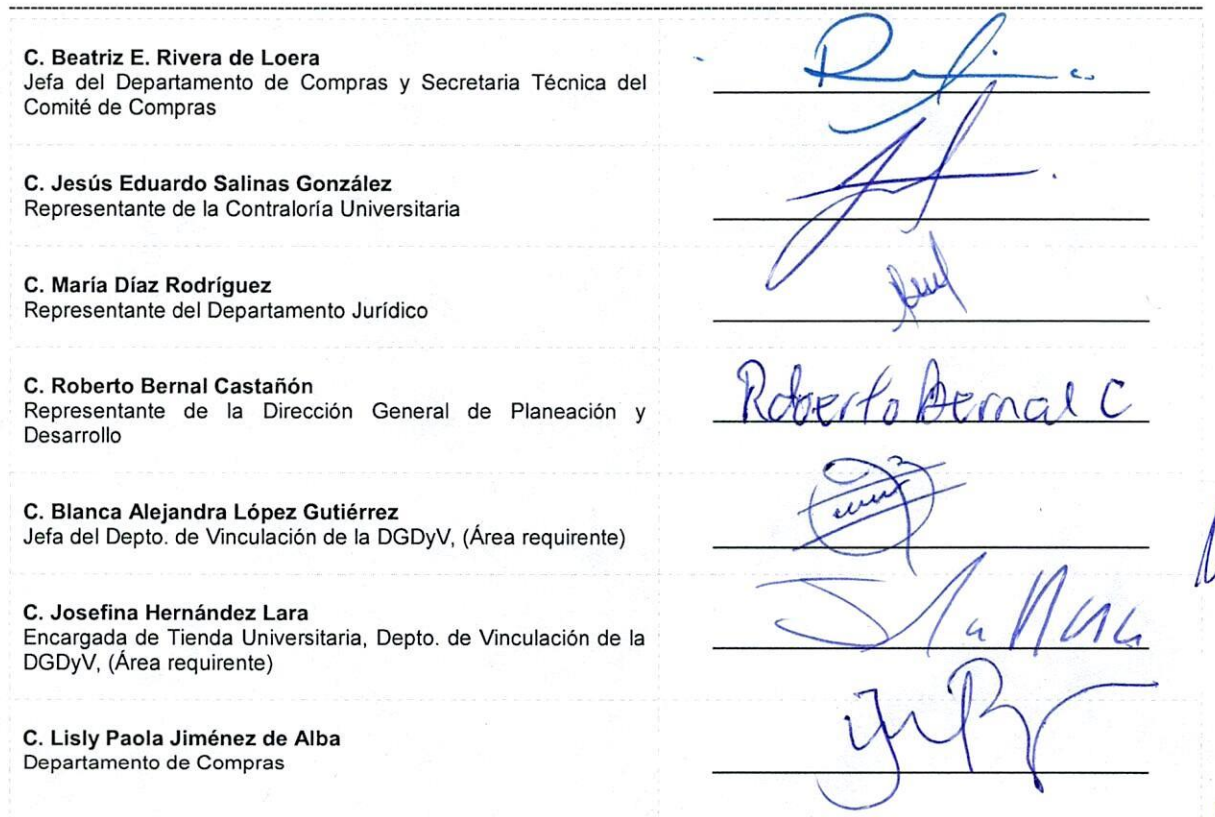 C. Beatriz E. Rivera de Loera
Jefa del Departamento de Compras y Secretaria Técnica del
Comité de Compras
C. Jesús Eduardo Salinas González
Representante de la Contraloría Universitaria
C. María Díaz Rodríguez
Representante del Departamento Jurídico
C. Roberto Bernal Castañón
Representante de la Dirección General de Planeación y
Desarrollo
Roberto Bernal C
C. Blanca Alejandra López Gutiérrez
Jefa del Depto. de Vinculación de la DGDyV, (Área requirente)
C. Josefina Hernández Lara
Encargada de Tienda Universitaria, Depto. de Vinculación de la
DGDyV, (Área requirente)
C. Lisly Paola Jiménez de Alba
Departamento de Compras